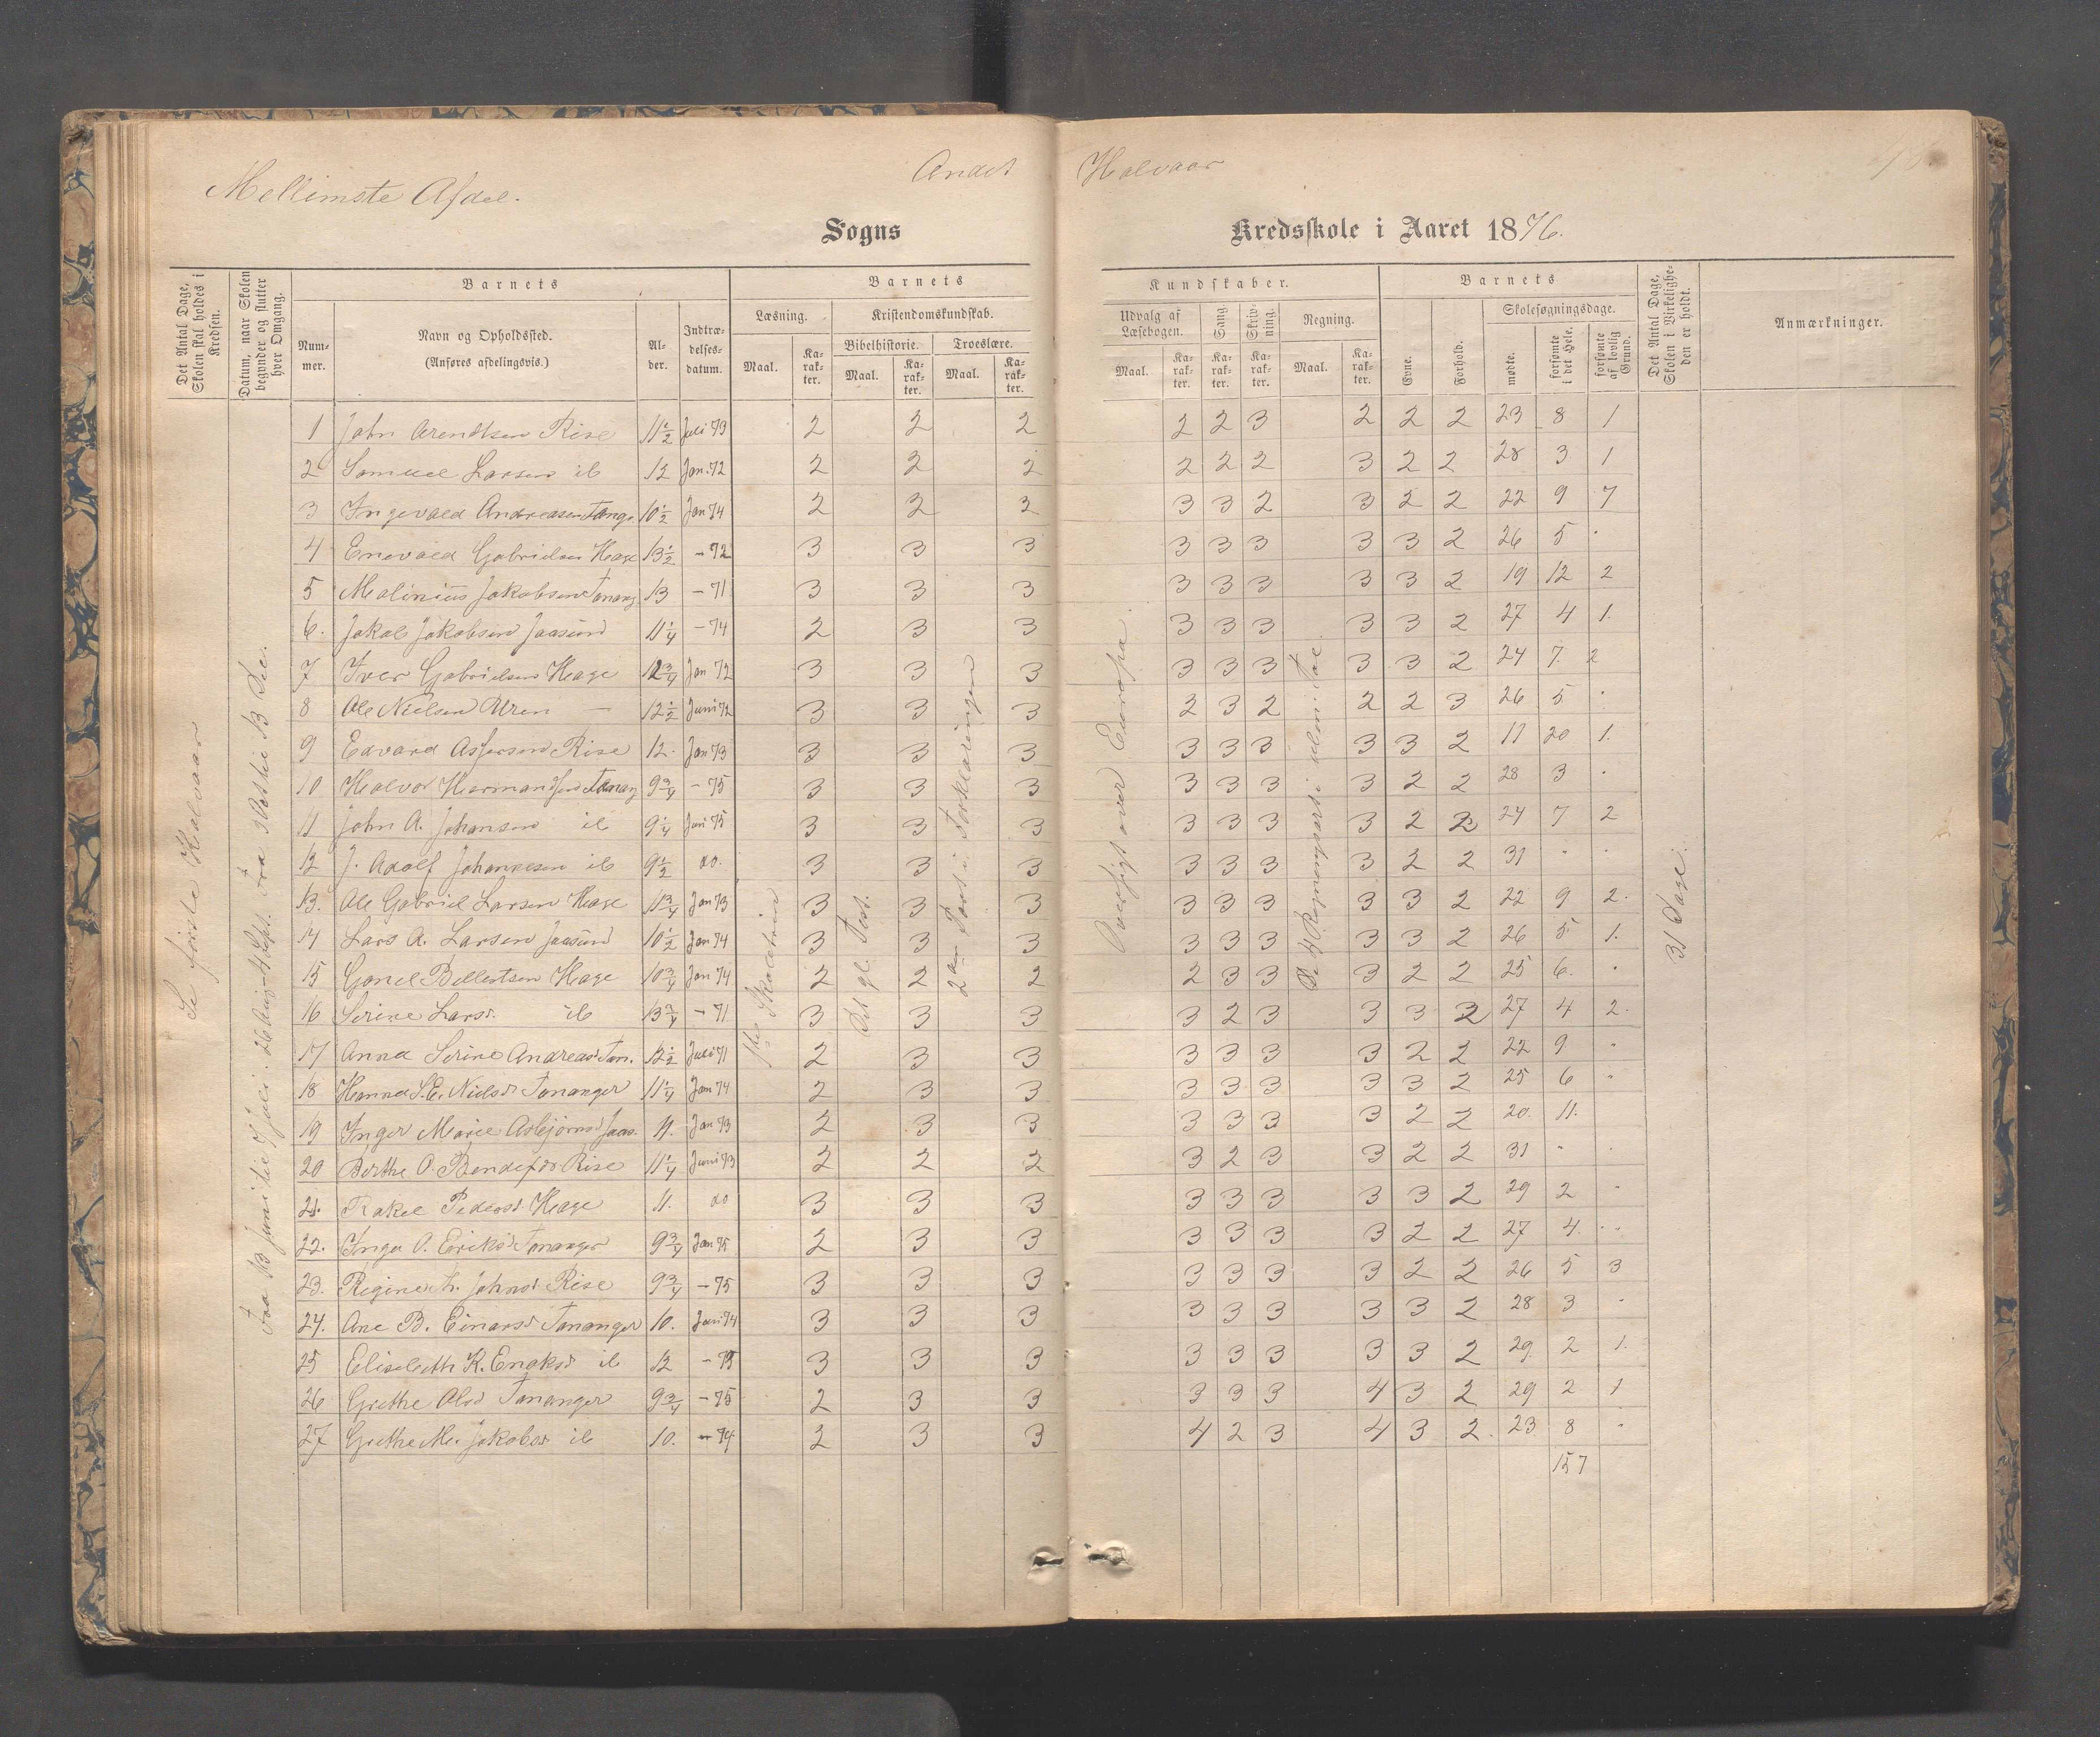 Mellemste Afdel.
Andet Halvaar
Sogns Kredsskole i Aaret 1876.
Det Antal Dage, Skolen skal holdes i Kredsen.
Datum, naar Skolen begynder og slutter hver Omgang.
Barnets
Nummer.
Navn og Opholdssted.
(Anføres afdelingsvis.)
Alder.
Indtrædelsesdatum.
Barnets
Læsning.
Maal.
Karakter.
Kristendomskundskab.
Bibelhistorie.
Maal.
Karakter.
Troeslære.
Maal.
Karakter.
Kundskaber.
Udvalg af Læsebogen.
Maal.
Karakter.
Sang.
Karakter.
Skrivning.
Karakter.
Regning.
Maal.
Karakter.
Barnets
Evne.
Forhold.
Skolesøgningsdage.
mødte.
forsømte i det Hele.
forsømte af lovlig Grund.
Det Antal Dage, Skolen i Virkeligheden er holdt.
Anmærkninger.
Se første Halvaar
Fra 13 Juni til 7 Juli. 26 Aug-4 Sept. Fra 3 Oct til 13 Dec.
2den Part i Forklaringen
Det gl. Test.
Oversigt over Europa.
De 4 Regningsarter i ubn: Tal
31 Dage.
1 John Arendtsen Rise 11½ Juli 73 2 2 2 2 2 3 2 2 2 23 8 1
2 Samuel Larsen ib 12 Jan. 72 2 2 2 2 2 2 3 2 2 28 3 1
3 Ingevald Andreasen Tangr 10½ Jan 74 2 2 2 3 3 2 3 2 2 22 9 7
4 Enevald Gabrielsen Hage 13½ - 72 3 3 3 3 3 3 3 3 2 26 5 "
5 Malinius Jakobsen Tanang 13 - 71 3 3 3 3 3 3 3 3 2 19 12 2
6. Jakob Jakobsen Jaasund 11¼ - 74 2 3 3 3 3 3 3 3 2 27 4 1.
7 Iver Gabrielsen Hage 12¾ Jan 72 3 3 3 3 3 3 3 3 2 24 7. 2
8 Ole Nielsen Uren — 12½ Juni 72 3 3 3 2 3 2 2 2 3 26 5 "
9 Edvard Asgersen Rise 12. Jan 73 3 3 3 3 3 3 3 3 2 11 20 1.
10 Halvor Hermandsen Tanang 9¾ - 75 3 3 3 3 3 3 3 2 2 28 3 "
11 John A. Johansen ib 9¼ Juni 75 3 3 3 3 3 3 3 2 2 24 7 2
12 J. Adolf Johannesen ib 9½ do. 3 3 3 3 3 3 3 2 2 31 " "
13. Ole Gabriel Larsen Hage 11¾ Jan 73 3 3 3 3 3 3 3 3 2 22 9 2.
14 Lars A. Larsen Jaasund 10½ Jan 74 3 3 3 3 3 3 3 3 2 26 5 1.
15 Gabriel Bellestsen Hage 10¾ Jan 74 2 2 2 2 3 3 3 2 2 25 6. "
16 Serine Larsd. ib 13¾ - 71 3 3 3 3 2 3 3 3 2 27 4 2.
17 Anna Serine Andreasd Tan. 12½ Juli 71 2 3 3 3 3 3 3 2 2 22 9 "
18 Hanna S. E. Nielsdr Tananger 11¼ Jan 74 2 3 3 3 3 3 3 3 2 25 6 "
19 Inger Marie Asbjørnsd Jaas. 11. Jan 73 2 3 3 3 3 3 3 2 2 20. 11.
20 Berthe O. Rise 11¼ Juni 73 2 2 2 3 2 3 3 2 2 31 " "
21. Rakel Pedersd. Hage 11. do 3 3 3 3 3 3 3 3 2 29 2 "
22. Inger O. Eriksd Tananger 9¾ Jan 75 2 3 3 3 3 3 3 2 2 27 4. "
23. Regine Johnsd Rise 9¾ - 75 3 3 3 3 3 3 3 2 2 26 5 3
24. Ane B. Einarsd Tananger 10. Juni 74 3 3 3 3 3 3 3 3 2 28 3 "
25 Elisabeth K. Enoksd ib 12 - 75 3 3 3 3 3 3 3 3 2 29. 2 1.
26 Grethe Olsd Tananger 9¾ - 75 2 3 3 3 3 3 4 3 2 29 2 1
27 Grethe M. Jakobsd ib 10. - 74 2 3 3 4 2 3 4 3 2. 23 8 "
157